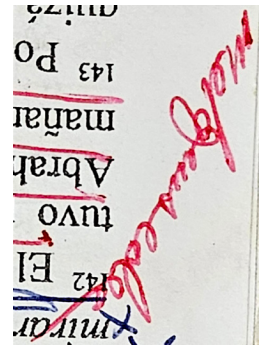 mirar
142 El
tuvo
Abrah
mañan
143 Po
quizá